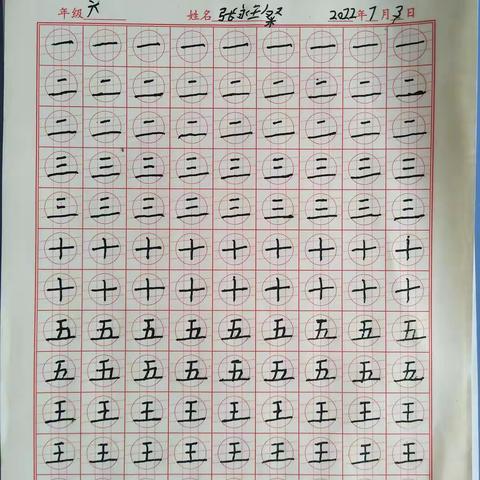 年级 六 姓名 张 2022年7月3日
一 一 一 一 一 一 一 一 一
二 二 二 二 二 二 二 二 二
二 二 二 二 二 二 二 二 二
三 三 三 三 三 三 三 三 三
三 三 三 三 三 三 三 三 三
十 十 十 十 十 十 十 十 十
十 十 十 十 十 十 十 十 十
五 五 五 五 五 五 五 五 五
五 五 五 五 五 五 五 五 五
王 王 王 王 王 王 王 王 王
王 王 王 王 王 王 王 王 王